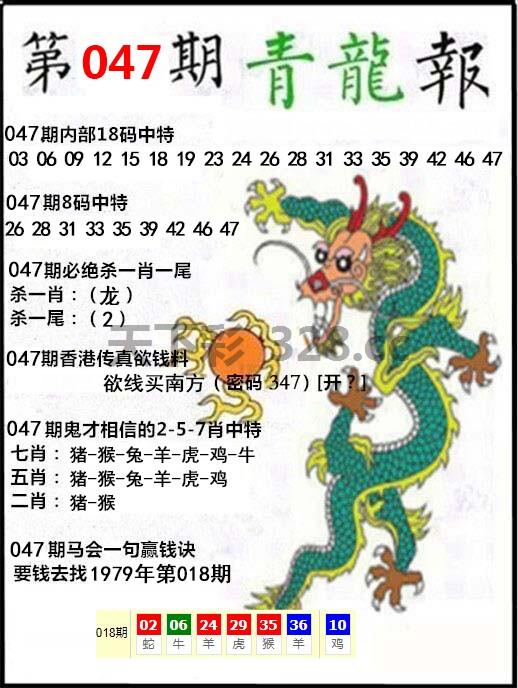 第047期青龍報
047期内部18码中特
03 06 09 12 15 18 19 23 24 26 28 31 33 35 39 42 46 47
047期8码中特
26 28 31 33 35 39 42 46 47
047期必绝杀一肖一尾
杀一肖：（龙）
杀一尾：（2）
047期香港传真欲钱料
欲线买南方（密码 347）[开？]
047期鬼才相信的2-5-7肖中特
七肖：猪-猴-兔-羊-虎-鸡-牛
五肖：猪-猴-兔-羊-虎-鸡
二肖：猪-猴
047期马会一句赢钱诀
要钱去找1979年第018期
018期 02 06 24 29 35 36 10
蛇 牛 羊 虎 猴 羊 鸡